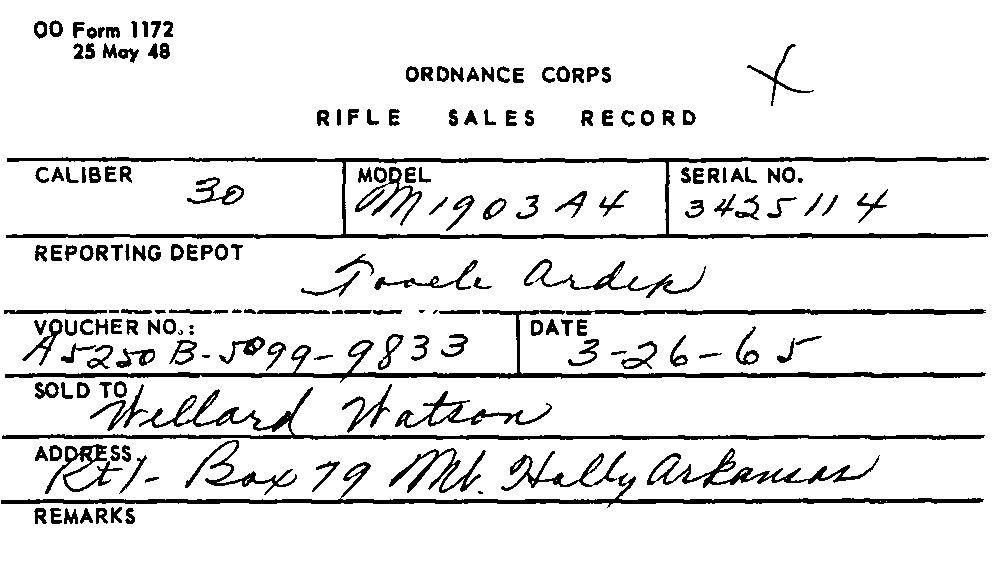 OO Form 1172
25 May 48
ORDNANCE CORPS
RIFLE SALES RECORD
CALIBER 30 MODEL M1903A4 SERIAL NO. 3425114
REPORTING DEPOT Tooele Ardep
VOUCHER NO.: A5250B-5099-9833 DATE 3-26-65
SOLD TO Willard Watson
ADDRESS Rt 1- Box 79 Mt. Holly Arkansas
REMARKS